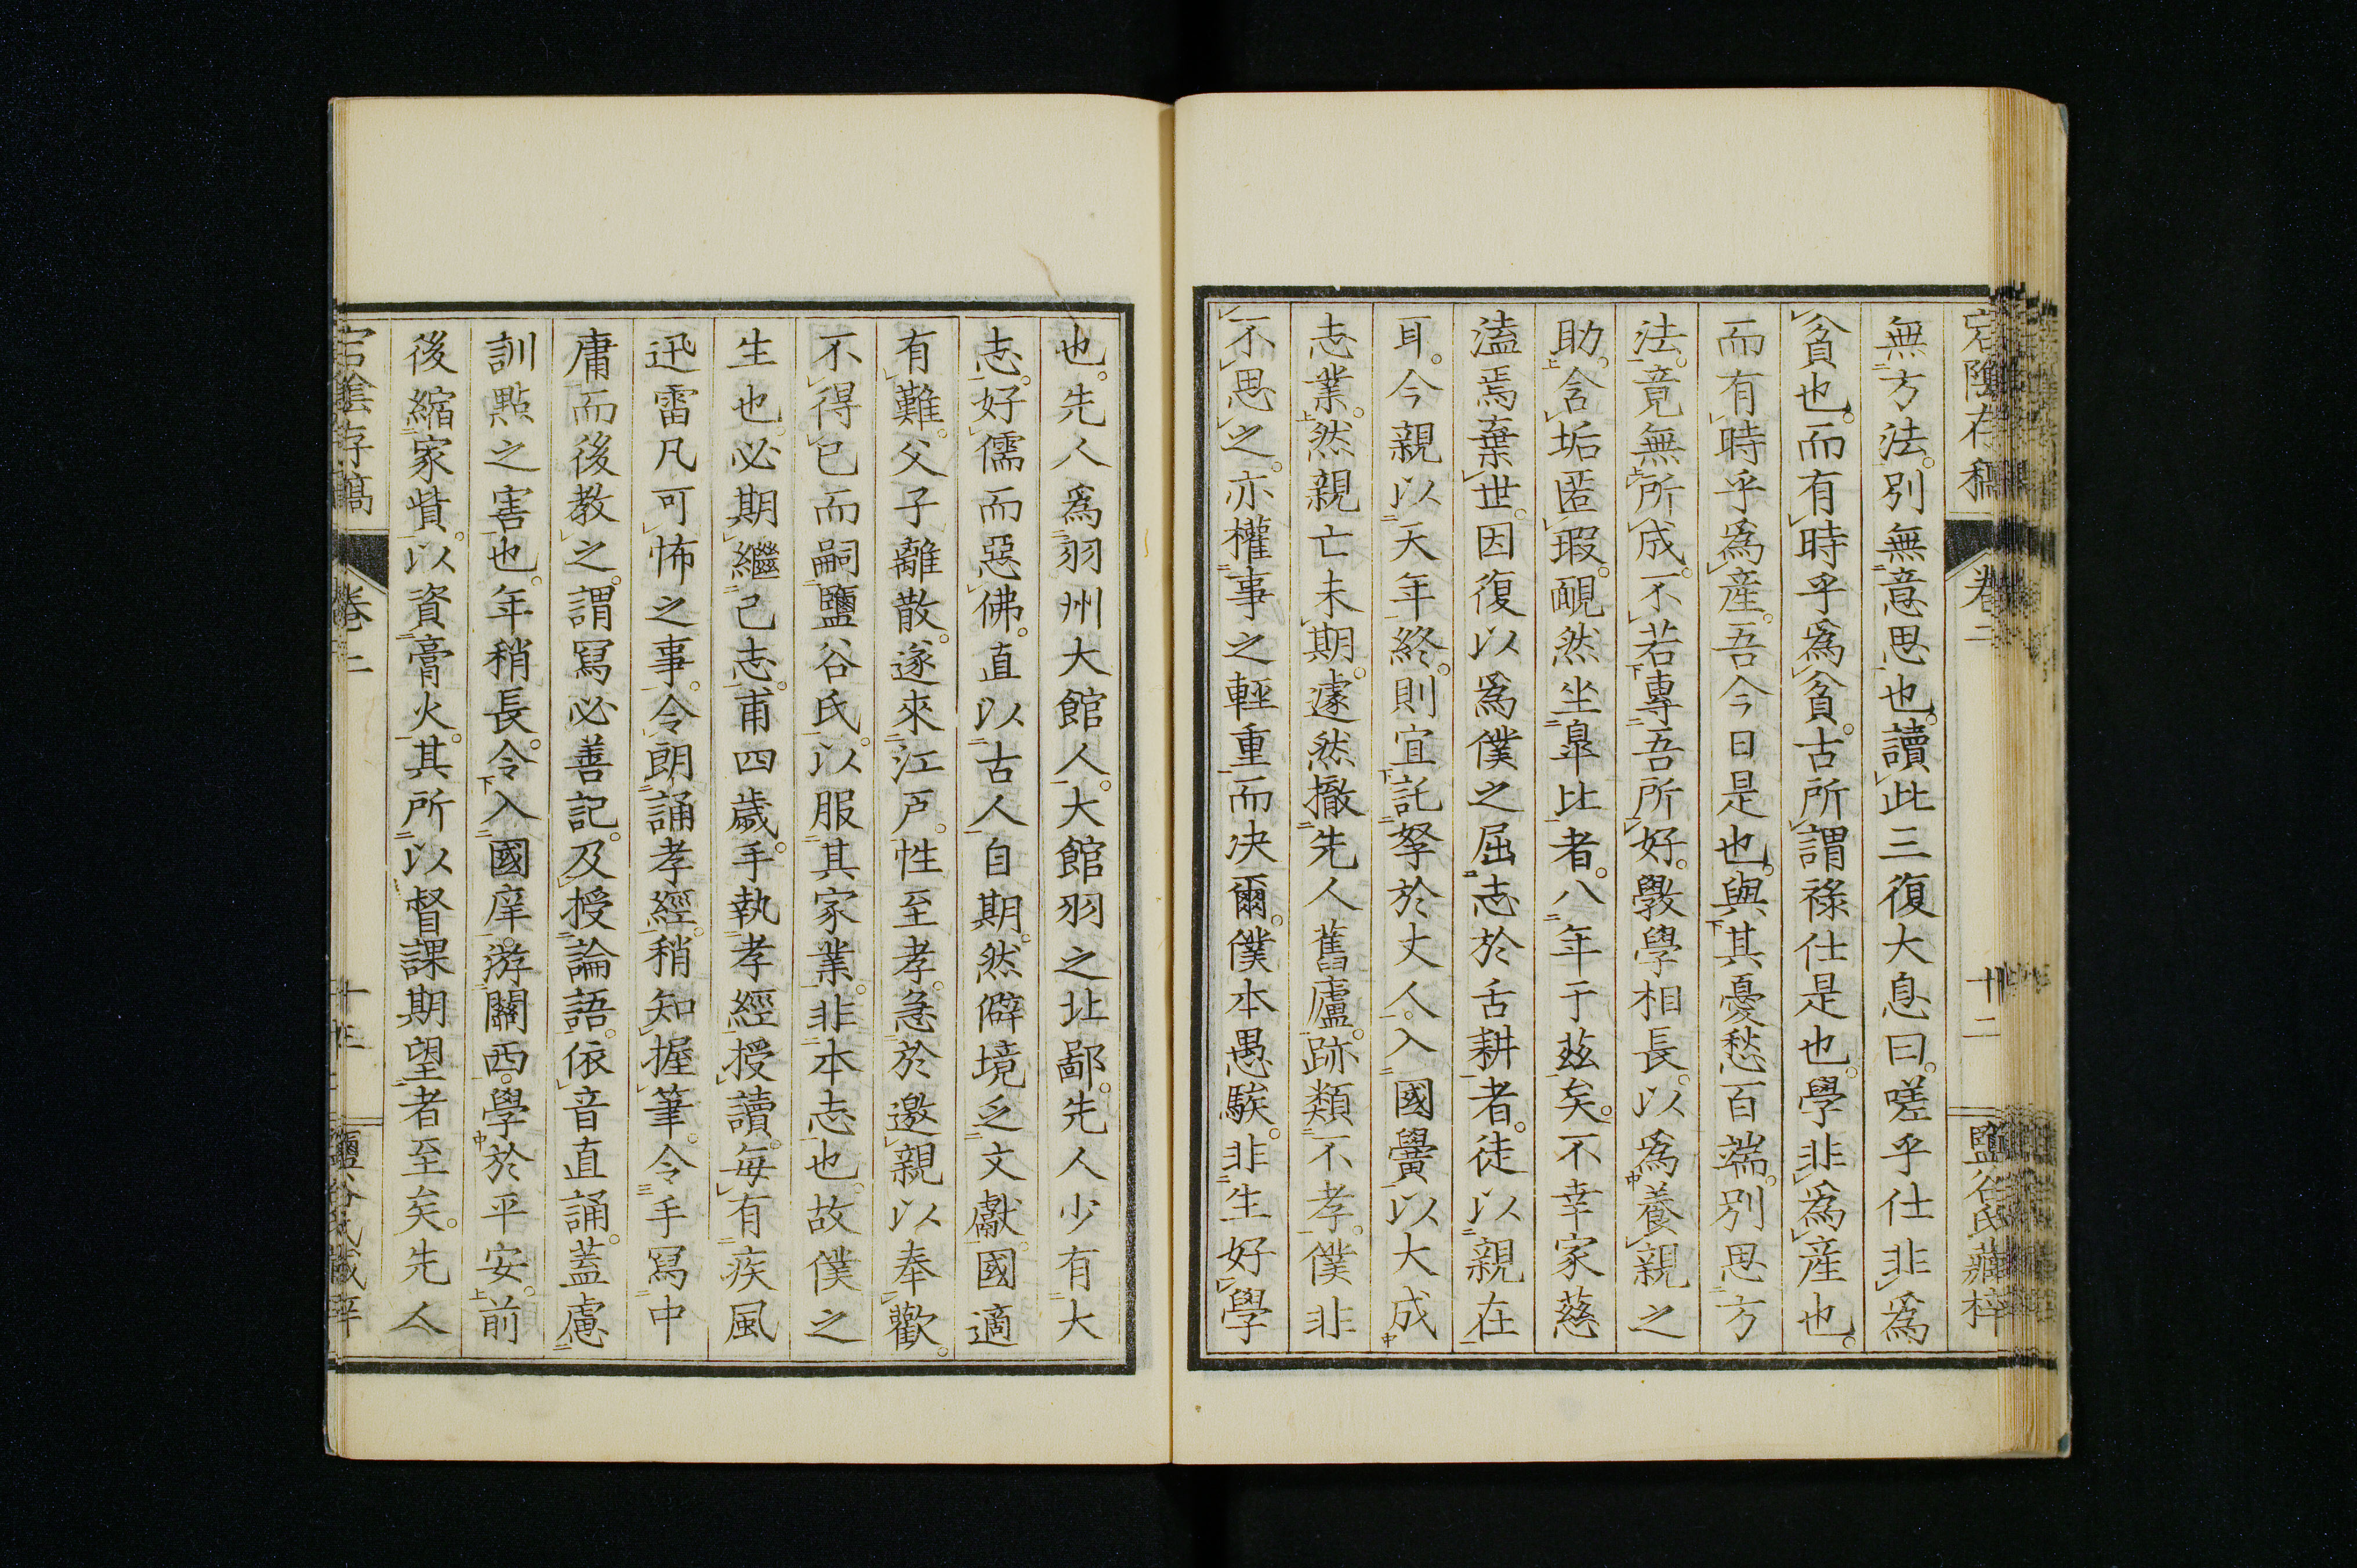 宕陰存稿 卷二 十二 鹽谷氏藏梓
無方法。別無意思也。讀此三復大息曰。嗟乎仕非爲
貧也。而有時乎爲貧。古所謂祿仕是也。學非爲産也。
而有時乎爲産。吾今日是也。與其憂愁百端。別思方
法。竟無所成。不若專吾所好。斅學相長。以爲養親之
助。含垢匿瑕。靦然坐皐比者。八年于茲矣。不幸家慈
溘焉棄世。因復以爲僕之屈志於舌耕者。徒以親在
耳。今親以天年終。則宜託孥於丈人。入國黌以大成
志業。然親亡未期。遽然撤先人舊廬。跡類不孝。僕非
不思之。亦權事之輕重而決爾。僕本愚騃。非生好學
也。先人爲羽州大館人。大館羽之北鄙。先人少有大
志。好儒而惡佛。直以古人自期。然僻境乏文獻。國適
有難。父子離散。遂來江戸。性至孝。急於邀親以奉歡。
不得已而嗣鹽谷氏。以服其家業。非本志也。故僕之
生也。必期繼己志。甫四歳。手執孝經授讀。毎有疾風
迅雷凡可怖之事。令朗誦孝經。稍知握筆。令手冩中
庸而後教之。謂冩必善記。及授論語。依音直誦。蓋慮
訓點之害也。年稍長。令入國庠。游關西。學於平安。前
後縮家貲。以資膏火。其所以督課期望者至矣。先人
宕陰存稿 卷二 鹽谷氏藏梓